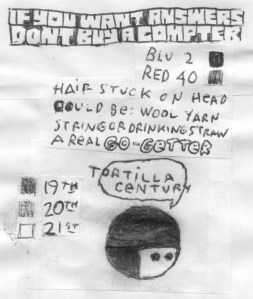 IF YOU WANT ANSWERS
DONT BUY A COMPTER
BLU 2
RED 40
HAIR STUCK ON HEAD
COULD BE: WOOL YARN
STRING OR DRINKING STRAW
A REAL GO-GETTER
TORTILLA
CENTURY
19TH
20TH
21ST